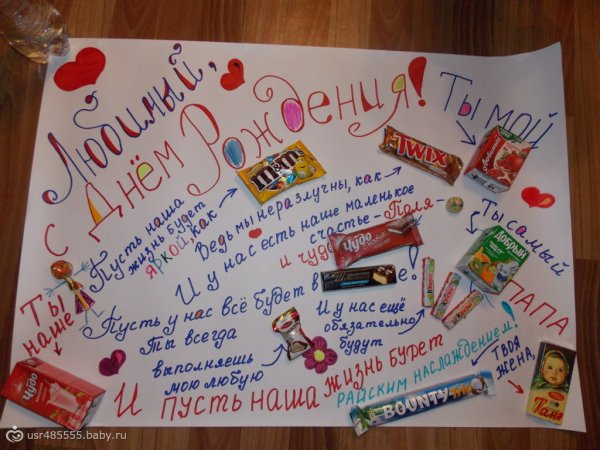 Любимый,
с Днём Рождения!
Ты мой
Любимый
Пусть наша
жизнь будет
яркой, как
m&m's
Ведь мы неразлучны, как
TWIX
И у нас есть наше маленькое
счастье - Поля -
и чудо
Чудо
Ты самый
Добрый
ПАПА
Пусть у нас всё будет в
!
Ты
наше
Чудо
Ты всегда
выполняешь
мою любую
И у нас ещё
обязательно
будут
Kinder
Kinder
Kinder
И пусть наша жизнь будет
райским наслаждением!
BOUNTY
Твоя
жена,
Таня
usr485555.baby.ru